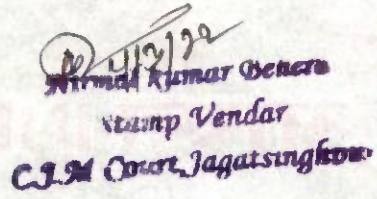 4/2/22
Nirmal Kumar Behera
Stamp Vendar
C.J.M Court, Jagatsinghpur